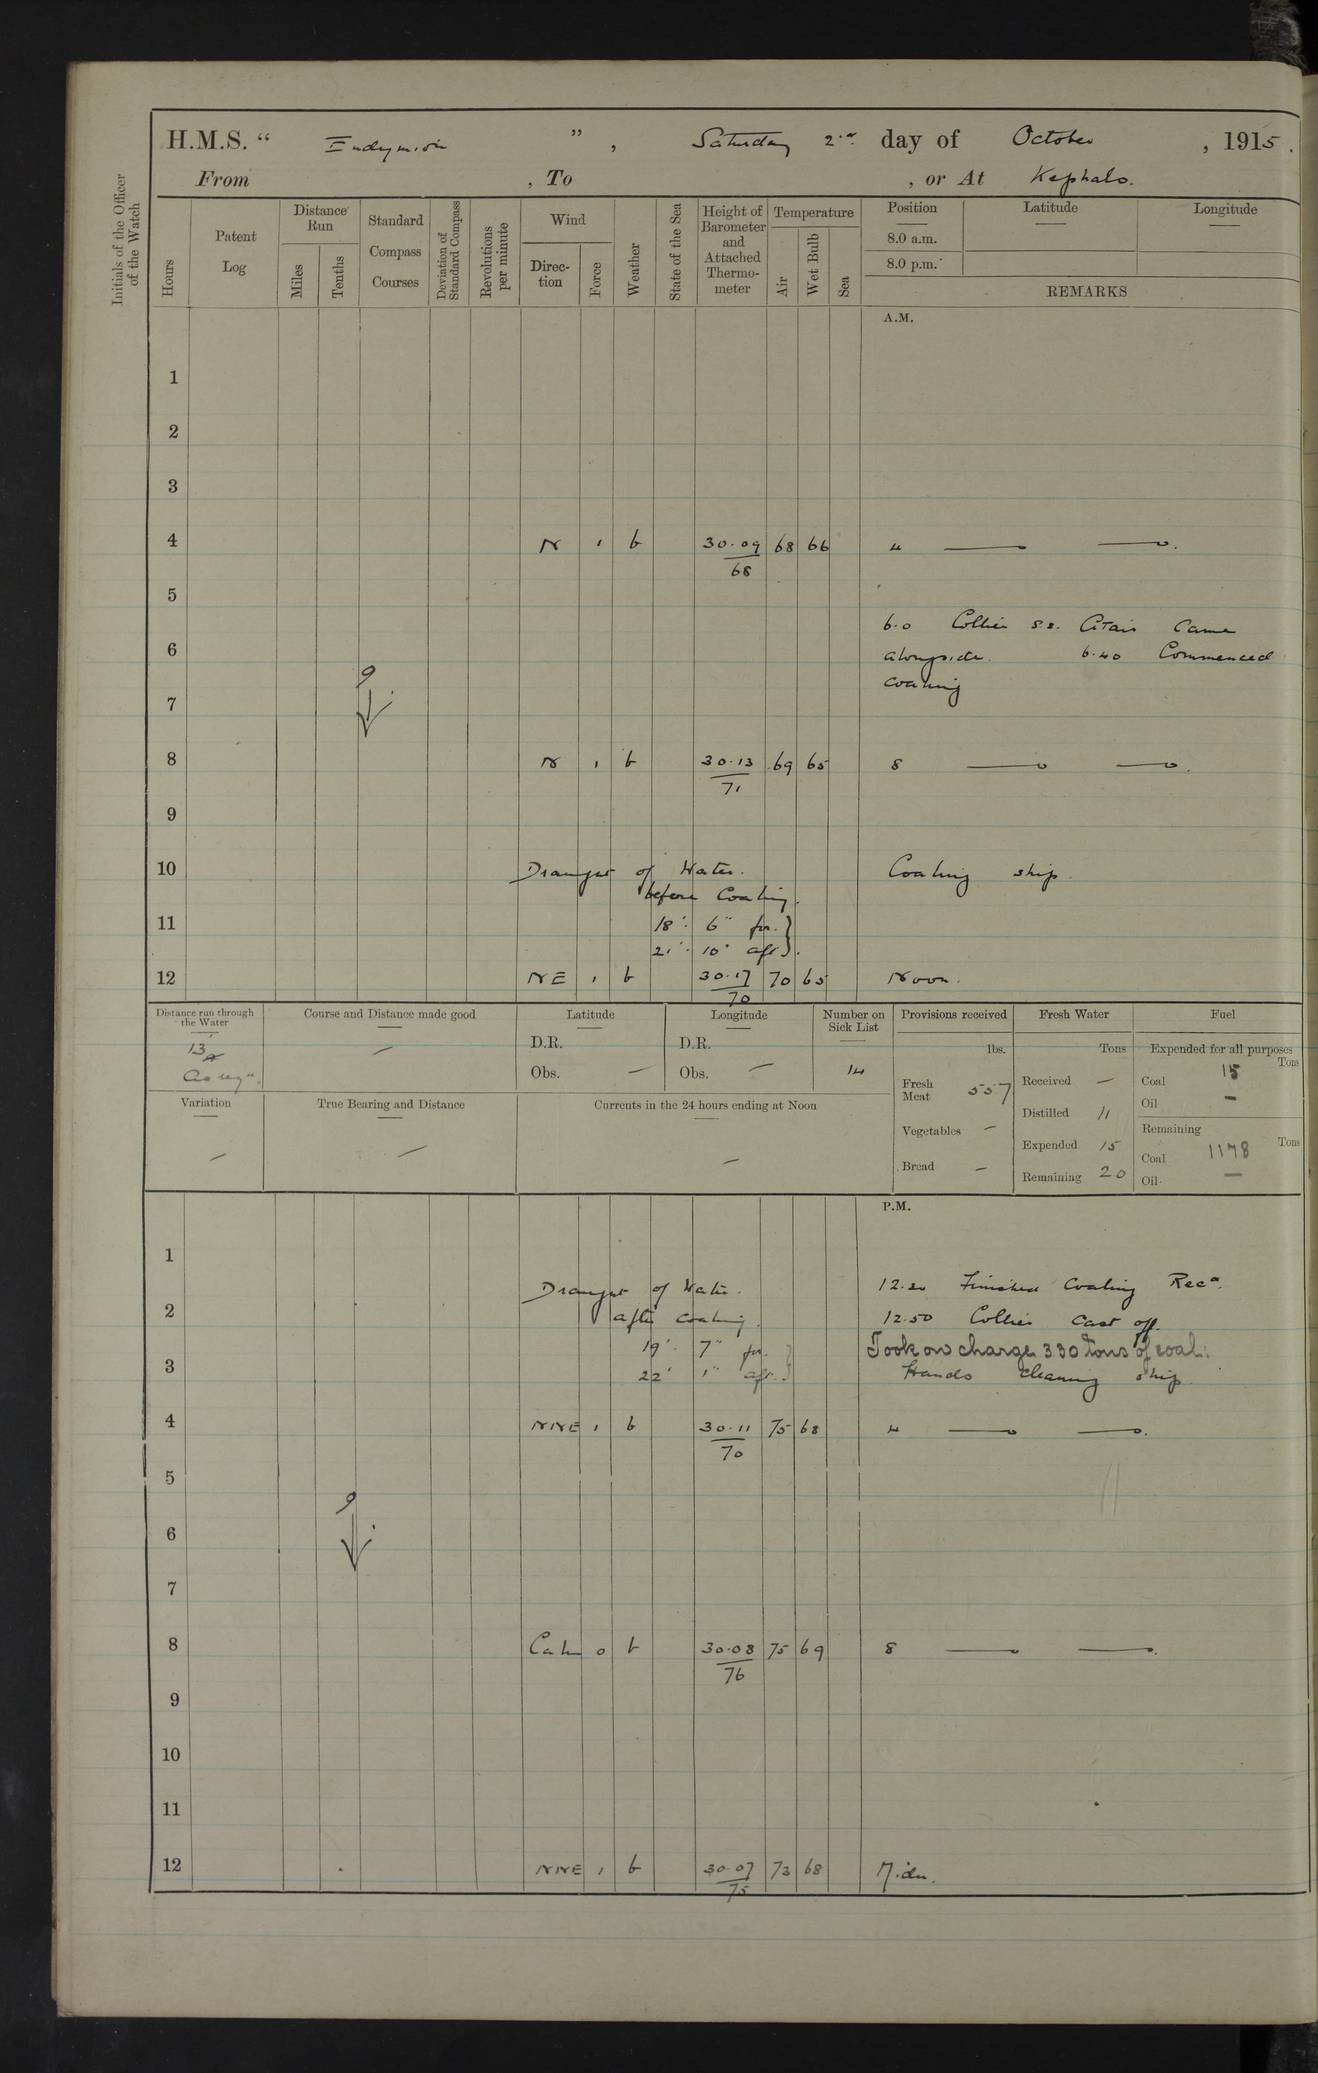 H.M.S. “ Endymion ” , Saturday 2nd day of October , 1915.
From , To , or At Kephalo.
Initials of the Officer of the Watch
Hours
Patent Log
Distance Run
Miles
Tenths
Standard Compass Courses
Deviation of Standard Compass
Revolutions per minute
Wind
Direc-tion
Force
Weather
State of the Sea
Height of Barometer and Attached Thermo-meter
Temperature
Air
Wet Bulb
Sea
Position Latitude Longitude
8.0 a.m.
8.0 p.m.
REMARKS
A.M.
1
2
3
4 N 1 b 30.09 68 66 4
68
5
6.0 Collier s.s. Came
6 alongside. 6.40 Commenced
coaling
9
7
8 N 1 b 30.13 69 65 8
71
9
10 Draught of Water. Coaling ship.
before Coaling.
11 18' 6" for.
21' 10" aft.
12 NE 1 b 30.17 70 65 Noon.
70
Distance run through the Water
Course and Distance made good
Latitude
D.R.
Obs. —
Longitude
D.R.
Obs. —
Number on Sick List
14
Provisions received
lbs.
Fresh Meat 557
Vegetables —
Bread —
Fresh Water
Tons
Received —
Distilled 11
Expended 15
Remaining 20
Fuel
Expended for all purposes
Tons
Coal 15
Oil —
Remaining
Tons
Coal 1178
Oil —
13
Variation
—
True Bearing and Distance
—
Currents in the 24 hours ending at Noon
—
P.M.
1
Draught of Water. 12.20 Finished Coaling Recd.
2 after coaling. 12.50 Collier cast off.
19' 7" for. Took on charge 330 tons of coal.
3 22' 1" aft. Hands cleaning ship
4 NNE 1 b 30.11 75 68 4
70
5
9
6
7
8 Calm 0 b 30.08 75 69 8
76
9
10
11
12 NNE 1 b 30.07 73 68 Midn.
75